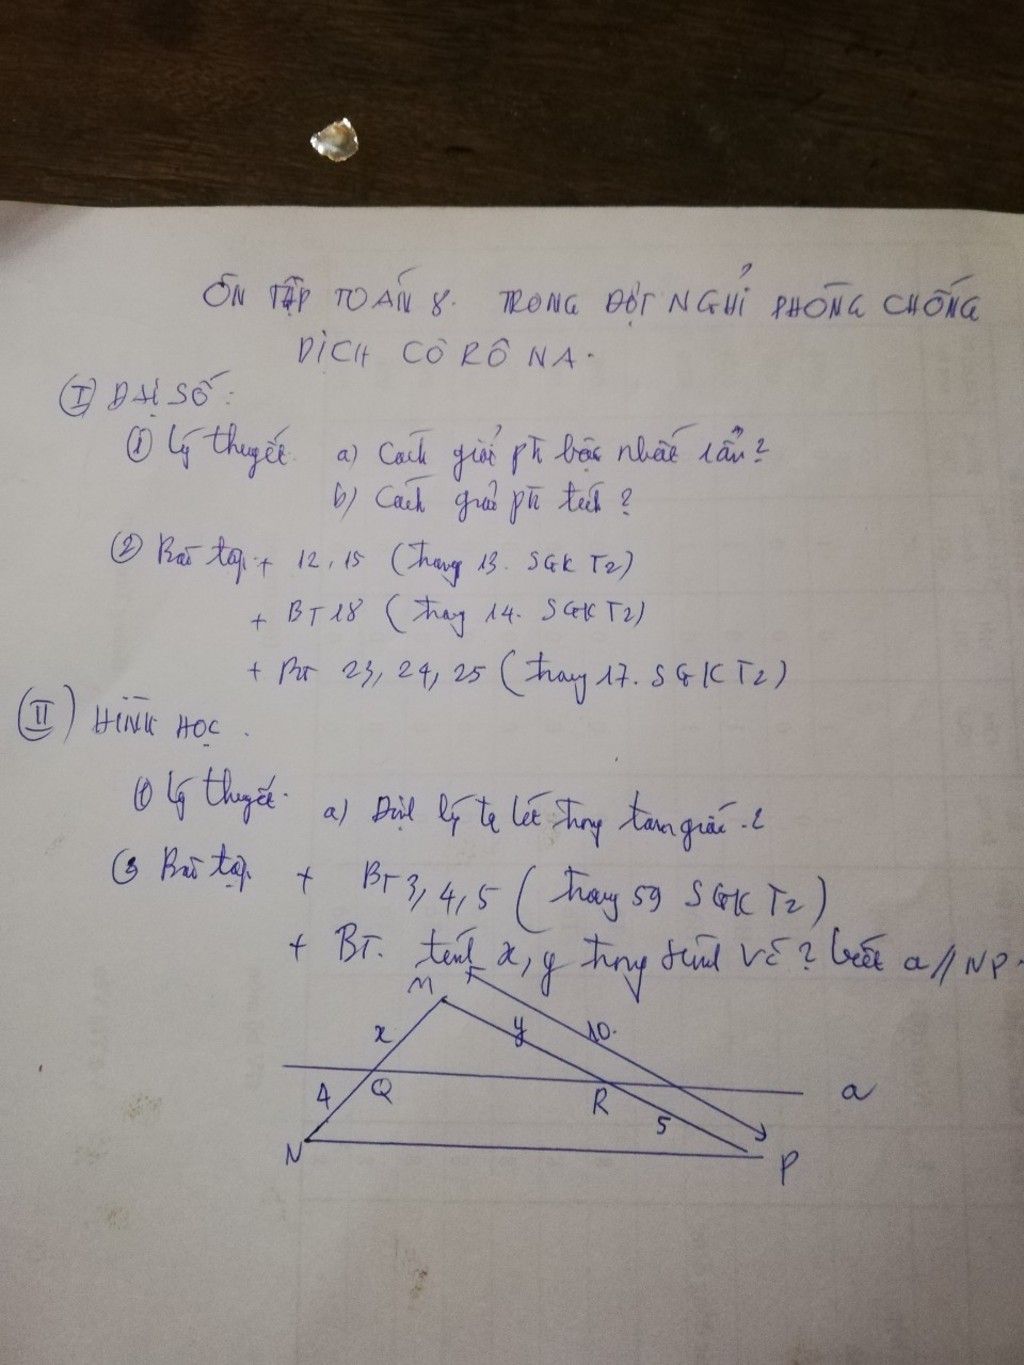 ÔN TẬP TOÁN 8. TRONG ĐỢT NGHỈ PHÒNG CHỐNG
DỊCH CÔ RÔ NA.
(I) ĐẠI SỐ:
(1) Lý thuyết a) Cách giải pt bậc nhất 1 ẩn?
b) Cách giải pt tích?
(2) Bài tập + 12, 15 (trang 13. SGK T2)
+ BT 18 (trang 14. SGK T2)
+ BT 23, 24, 25 (trang 17. SGK T2)
(II) HÌNH HỌC.
(1) Lý thuyết. a) Định lý ta lét trong tam giác.?
Bài tập + BT 3, 4, 5 (trang 59 SGK T2)
+ BT. tính x, y trong hình vẽ? biết a // NP.
M
x y 10.
4 Q R a
5
N P